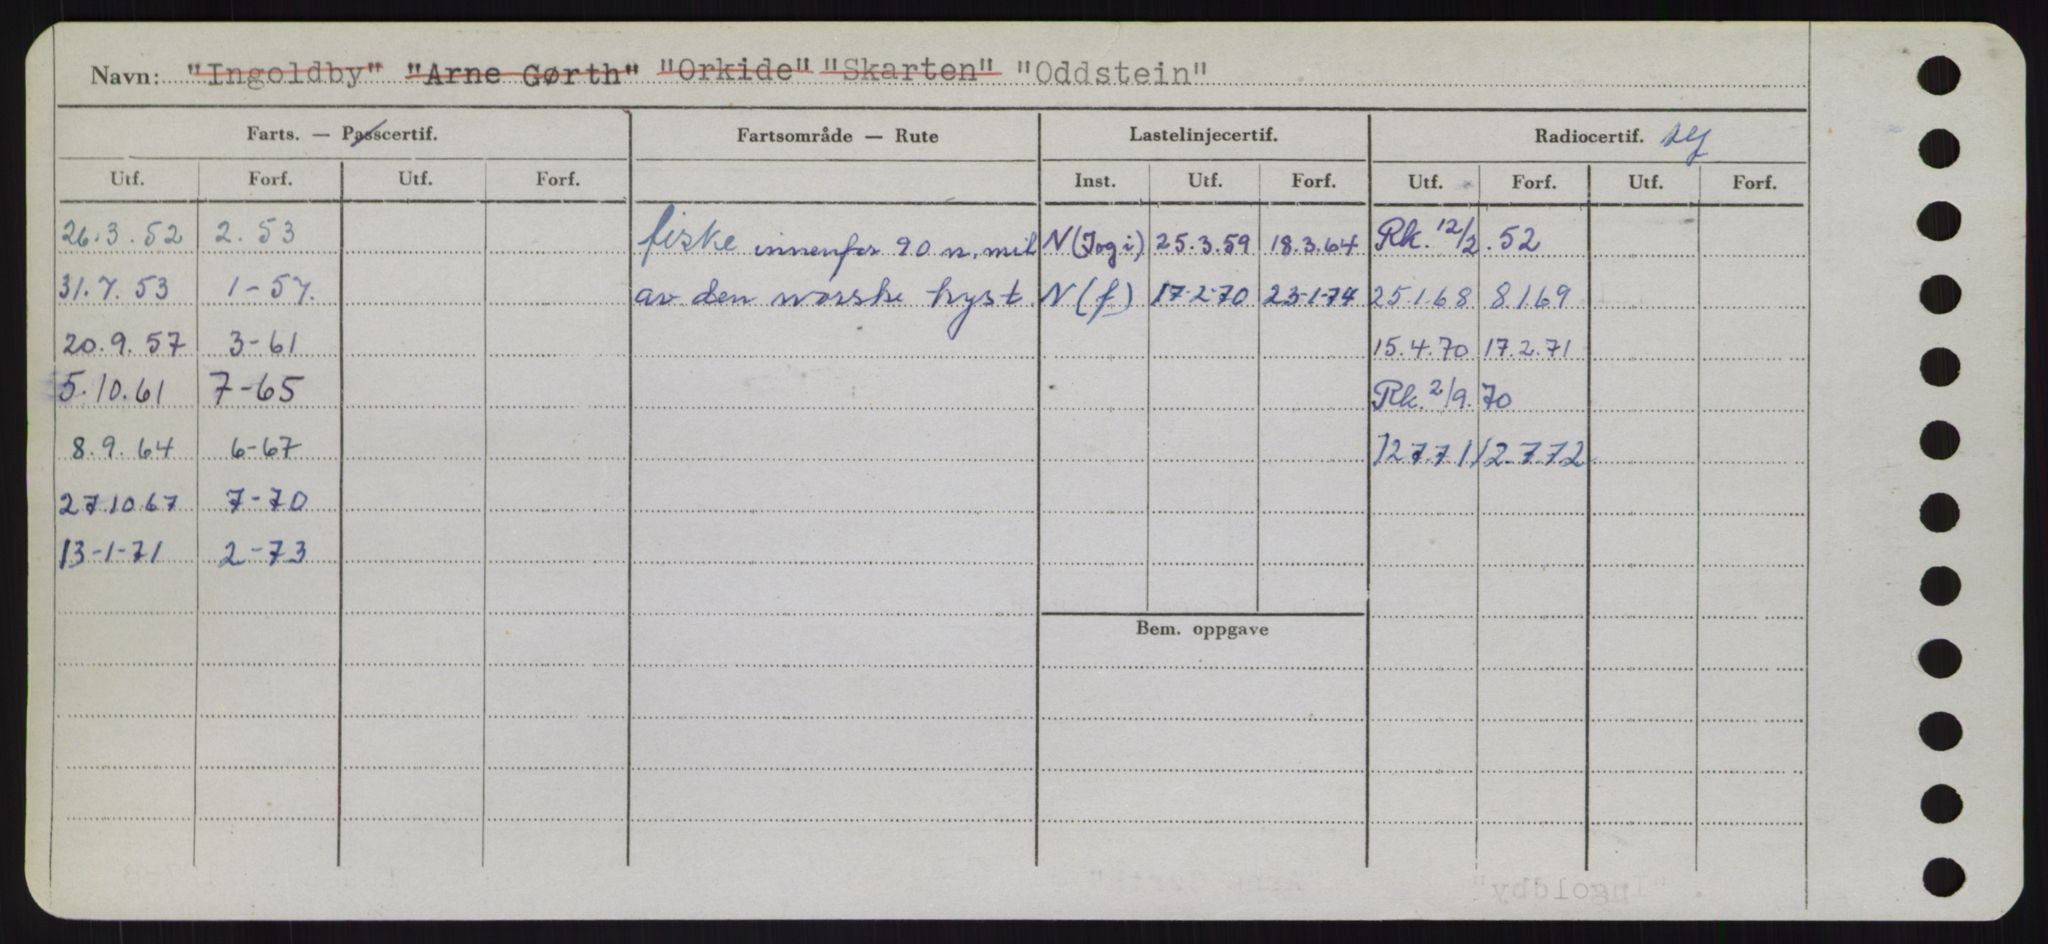 Navn: "Ingoldby" "Arne Gørth" "Orkide" "Skarten" "Oddstein"
Farts. — Passcertif. Fartsområde — Rute Lastelinjecertif. Radiocertif.
Utf. Forf. Utf. Forf. Inst. Utf. Forf. Utf. Forf. Utf. Forf.
26.3.52 2.53 fiske innenfor 20 n.mil N (Jogi) 25.3.59 18.3.64 Rk. 12/2.52
31.7.53 1-57. av den norske kyst. N (f) 17-2-70 23-1-74 25.1.68 8.1.69
20.9.57 3-61 15.4.70 17.2.71
5.10.61 7-65 Rk. 2/9.70
8.9.64 6-67 12.7.71 12.7.72
27.10.67 7-70
13-1-71 2-73
Bem. oppgave
"Arne Gørth" "Ingoldby"